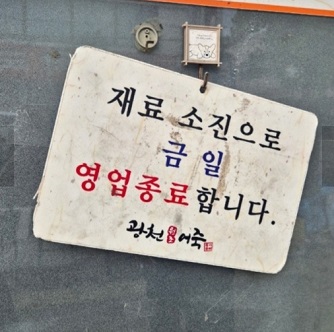 재료 소진으로
금일
영업종료합니다.
광천 어죽